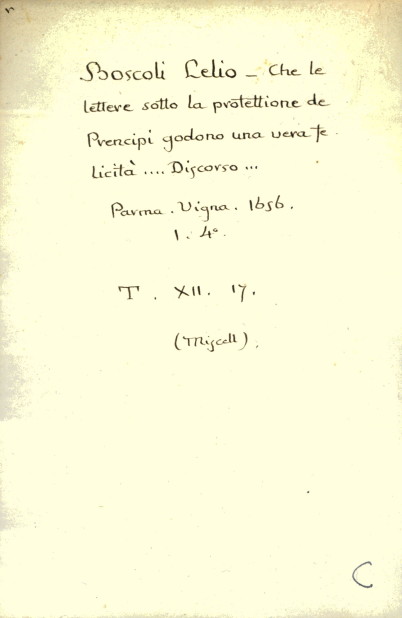 Boscoli Lelio – Che le
lettere sotto la protettione de
Prencipi godono una vera fe
licità .... Discorso ...
Parma . Vigna . 1656.
1. 4°.
T . XII. 17.
(Miscell).
C